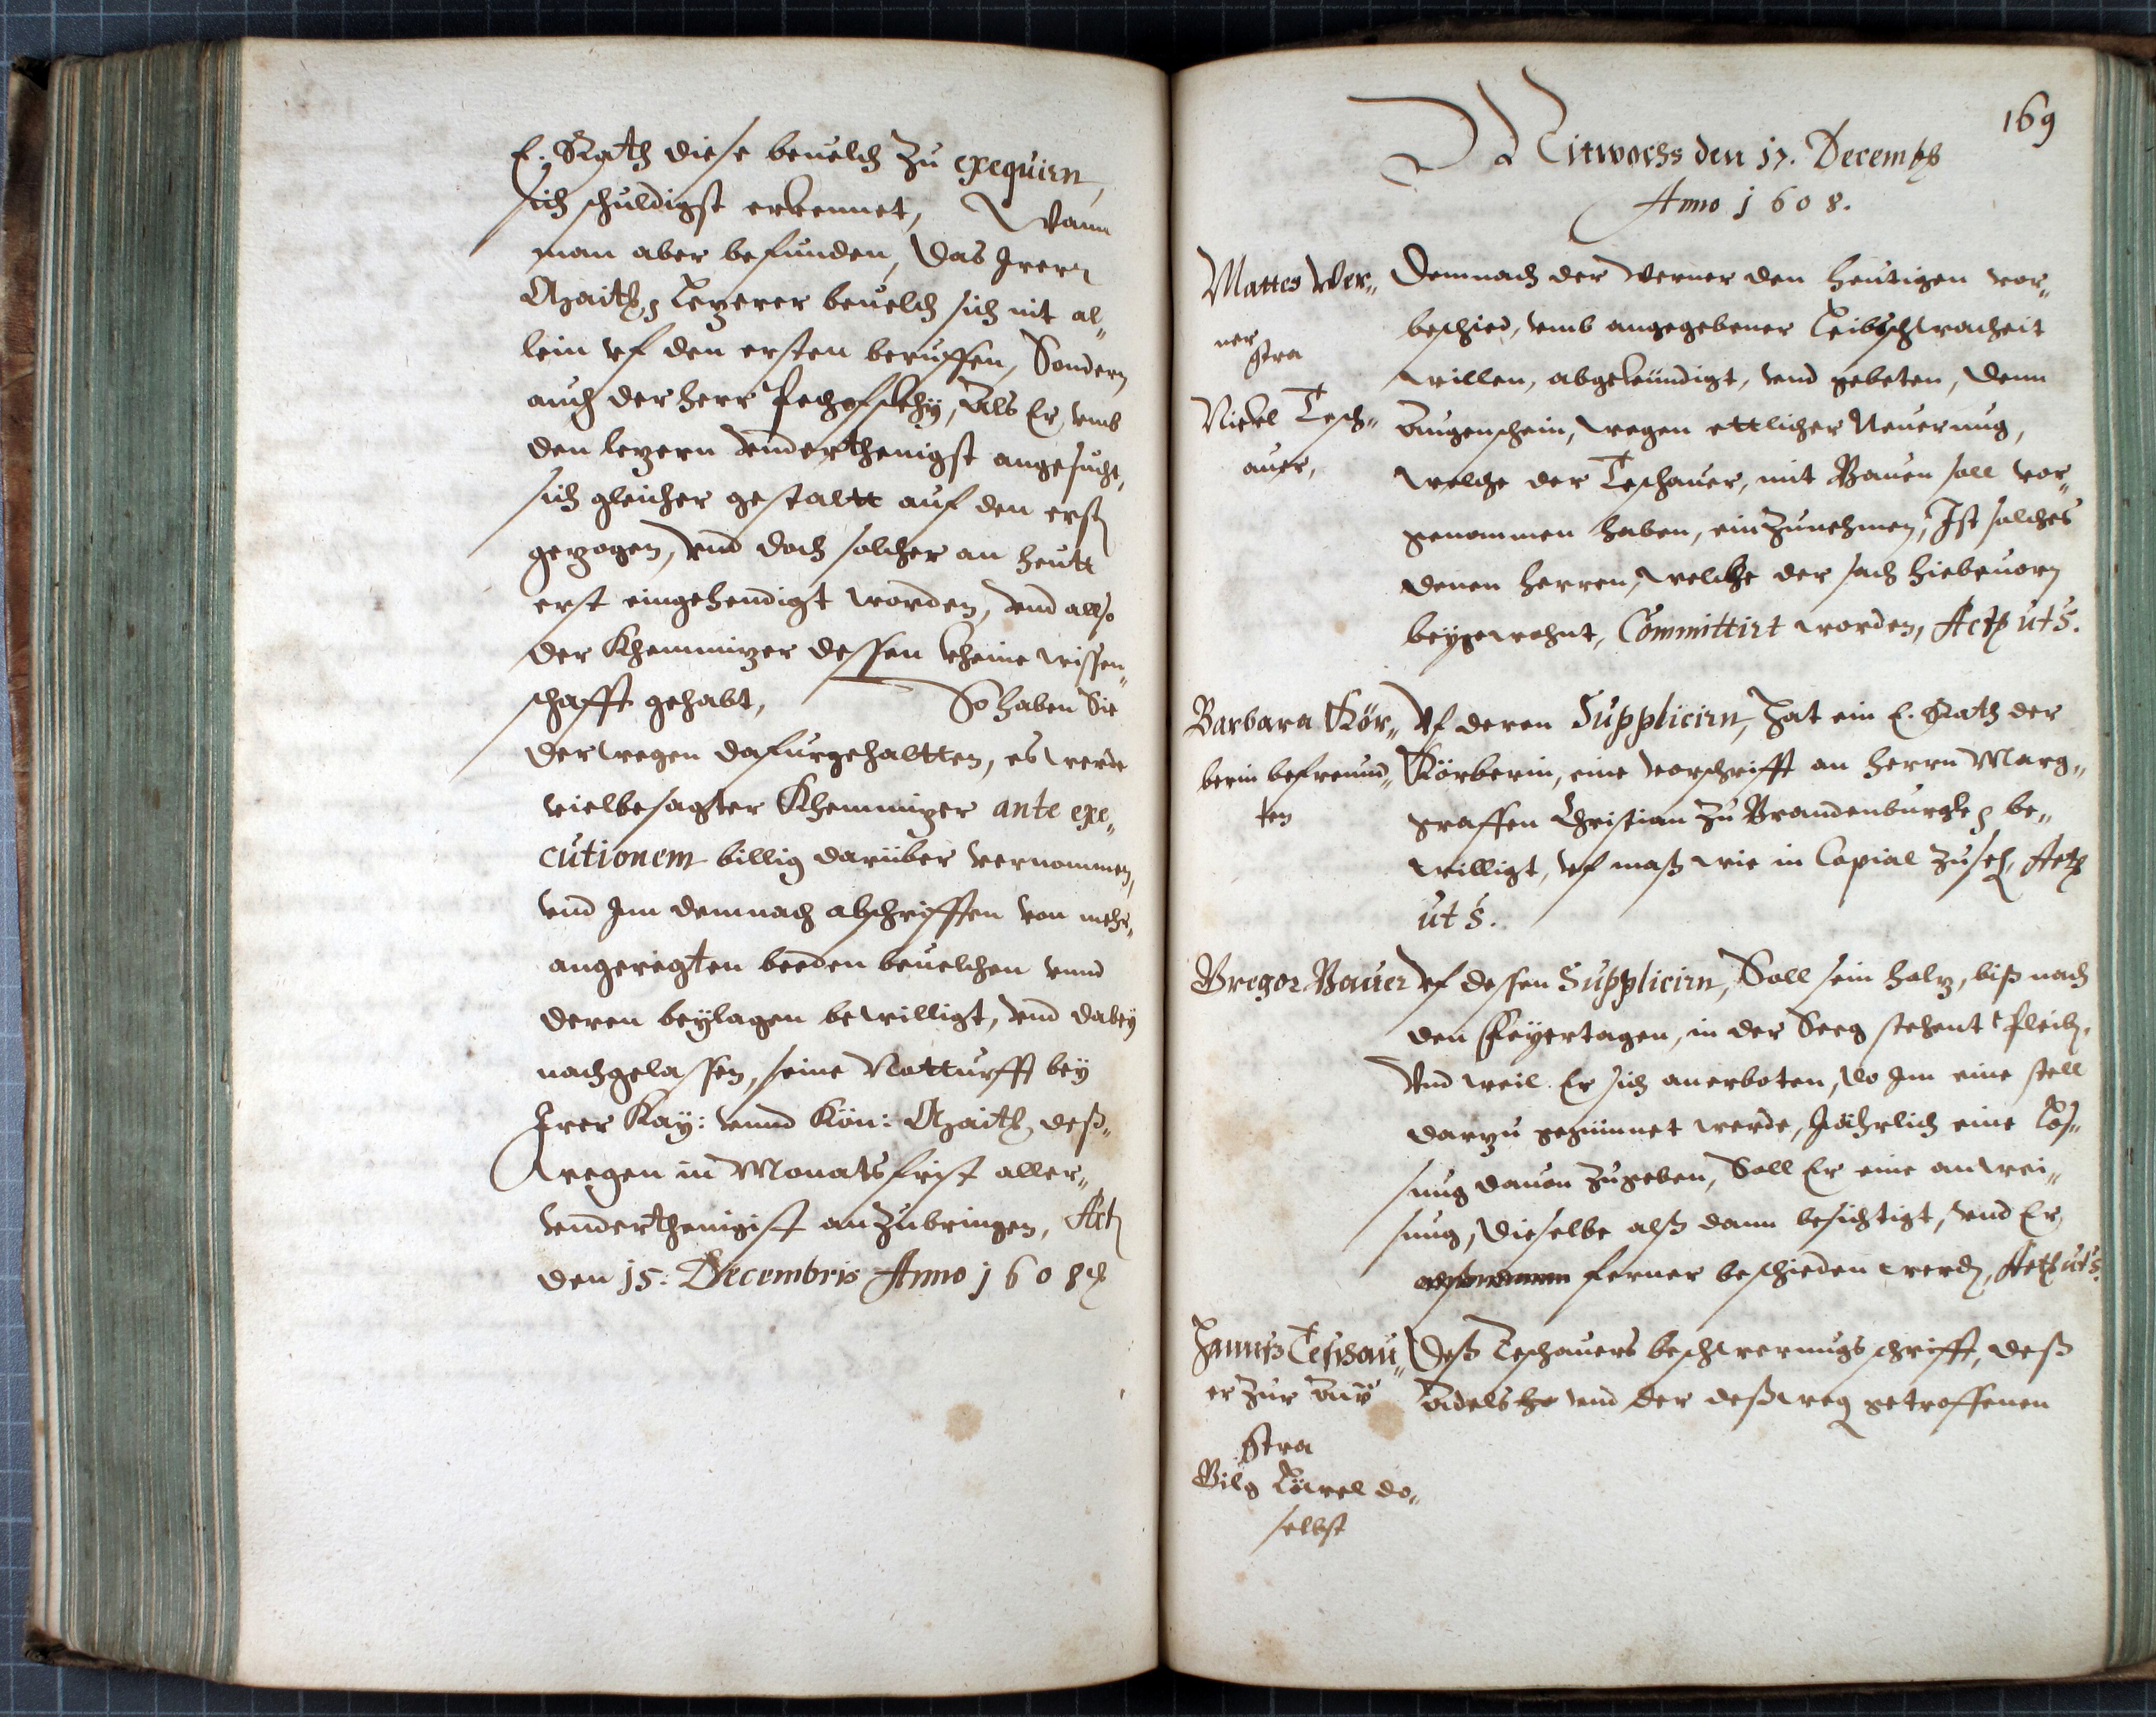 E. Rath diese beuelch zu exequirn,
sich schuldigst erkennet, Wann
man aber befunden, das Irer
Mait: letzerer beuelch sich nit al„
lein vf den ersten beruffen, Sondern
auch der herr, Als Er, vmb
den letzern vnderthenigst angesucht,
sich gleicher gestaltt auf den ersten
gezogen, vnd doch solcher an heutt
erst eingehendigt worden, vnd allso
der Khemnizer dessen kheine wissen„
schafft gehabt, So haben Sie
derwegen dafurgehaltten, es werde
vielbesagter Khemnizer ante exe„
cutionem billig darüber vernommen,
vnd Im demnach abschrifften von mehr„
angeregten beeden beuelchen vnnd
deren beÿlagen bewilligt, vnd dabeÿ
nachgelassen, seine Notturfft beÿ
Irer Kaÿ: vnnd Kön: Mait: deß„
wegen in Monatsfrist aller„
vnderthenigist anzubringen, Act
den 15: Decembris Anno 1608
169
Mitwochs den 17. Decemb
Anno 1608.
Mattes Wer„
ner
9tra
Nickel Tesch„
auer,
Demnach der Werner den heutigen vor„
beschied, vmb angegebener Leibschwacheit
willen, abgekündigt, vnd gebeten, denn
Augenschein, wegen ettlicher Neuerung,
welche der Teschauer, mit Bauen soll vor„
genommen haben, einzunehmen, Ist solches
denen herren, welche der sach hiebeuorn
beÿgewohnt, Committirt worden, Act uts.
Barbara Kör„
berin befreund„
ten
Vf deren Supplicirn, hat ein E. Rath der
Körberin, eine vorschrifft an herrn Marg„
graffen Christian zu Brandenburgk be„
willigt, vf maß wie in Copial zuseh, Act
uts.
Gregor Bauer
Vf dessen Supplicirn, Soll sein holz, biß nach
den Feÿertagen, in der Seeg stehent pleiben,
Vnd weil Er sich anerboten, do Im eine stell
darzu gegünnet werde, Jährlich eine Los„
sung dauon zugeben, Soll Er eine anwei„
sung, dieselbe alß dann besichtigt, vnd Er
ferner beschieden werden, Act uts.
Hannß Teschau„
er zur Aw
9tra
Gilg Löwel do„
selbst
Deß Teschauers beschwerungsschrifft, deß
Adels vnd der deßweg getroffenen